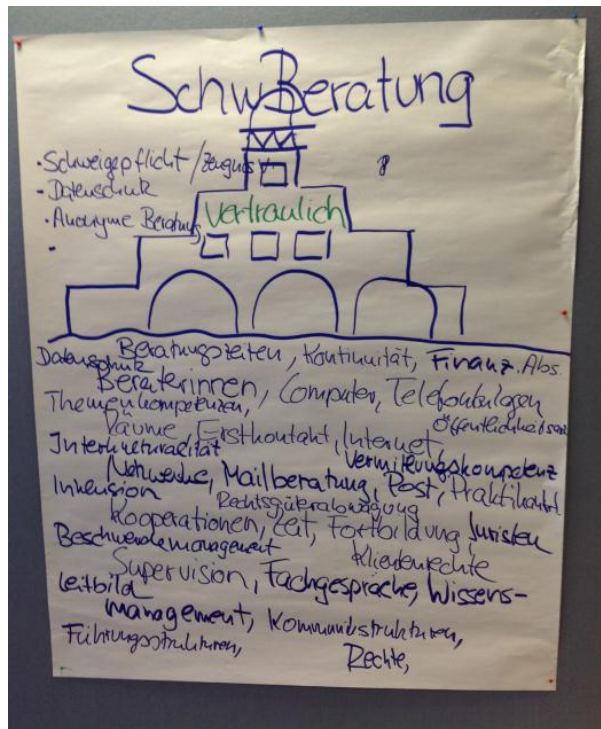 SchwBeratung
· Schweigepflicht / Zeugnis
- Datenschutz
vertraulich
· Anonyme Beratung
Datenschutz Beratungszeiten, Kontinuität, Finanz. Abs.
Beraterinnen, Computer, Telefonanlagen
Themenkompetenzen,
Räume, Erstkontakt, Internet,
Interkulturalität Vermittlungskompetenz
Netzwerke, Mailberatung, Post,
Inklusion Rechtsgüterabwägung
Kooperationen, Zeit, Fortbildung, Juristen
Beschwerdemanagement
Supervision, Fachgespräche, Wissens-
Leitbild
management,
Führungsstrukturen,
Rechte,